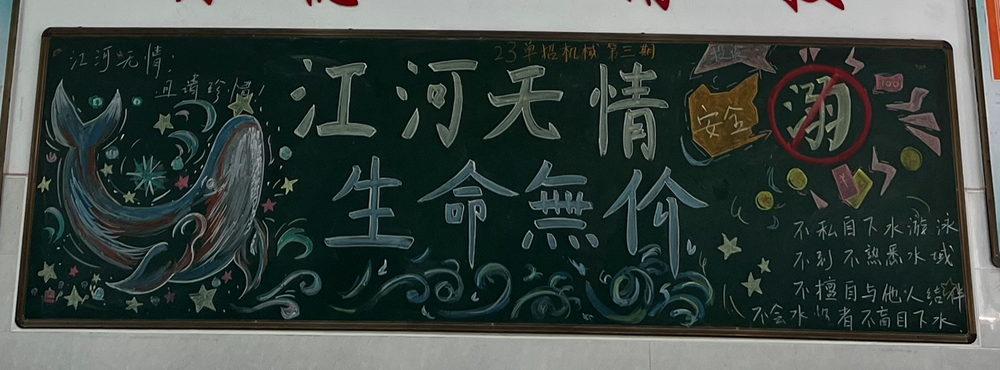 23单招机械第三期
江河无情：
且请珍惜！
江河无情
生命無价
安全
溺
100
不私自下水游泳
不到不熟悉水域
不擅自与他人结伴
不会水者不自下水